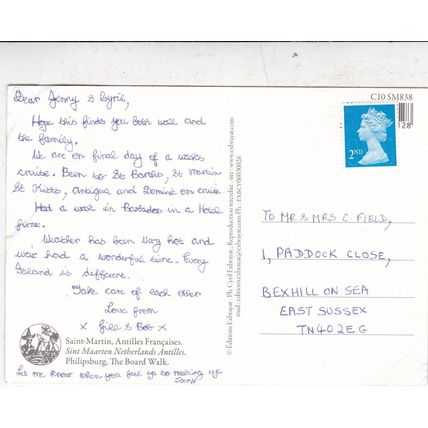 Dear Jenny & Cyril,
Hope this finds you both well and
the family.
We are on final day of a weeks
cruise. Been to St Barths, St Martin
St Kitts, Antigua and Dominica on cruise.
Had a week in Barbados in a Hotel
first.
Weather has been very hot and
we've had a wonderful time. Every
Island is different.
Take care of each other
Love from
x Gill & Bob x
Saint-Martin, Antilles Françaises.
Sint Maarten Netherlands Antilles.
Philipsburg, The Board Walk.
Let me know when you feel up to making
© Editions Exbrayat Ph: Cyril Exbrayat - Reproduction interdite
C10 SM838
128
2ND
TO MR & MRS C. FIELD,
1, PADDOCK CLOSE,
BEXHILL ON SEA
EAST SUSSEX
TN40 2EG